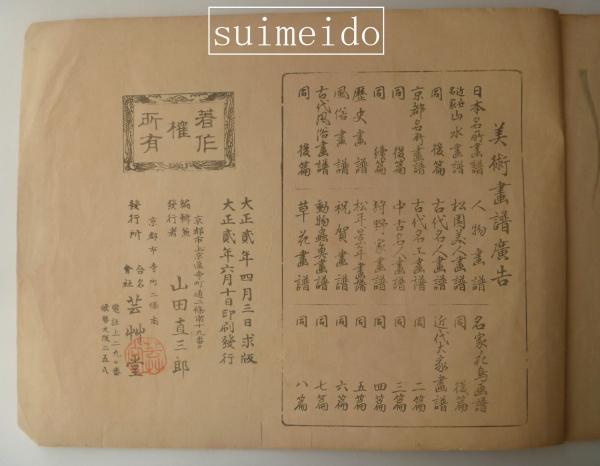 suimeido
美術畫譜廣告
日本名所畫譜
近古名家山水畫譜
同 後篇
京都名所畫譜
同 後篇
同 續篇
歷史畫譜
風俗畫譜
古代風俗畫譜
同 後篇
人物畫譜
松園美人畫譜
古代名人畫譜
古代名工畫譜
中古名人畫譜
狩野家畫譜
松年景年畫譜
祝賀畫譜
動物蟲魚畫譜
草花畫譜
名家花鳥画譜
同 後篇
近代大家畫譜
同 二篇
同 三篇
同 四篇
同 五篇
同 六篇
同 七篇
同 八篇
著作權所有
大正貳年四月三日求版
大正貳年六月十日印刷發行
京都市上京區寺町通二條南十九番戶
編輯兼發行者 山田直三郎
京都市寺町二條南
發行所 合名會社 芸艸堂